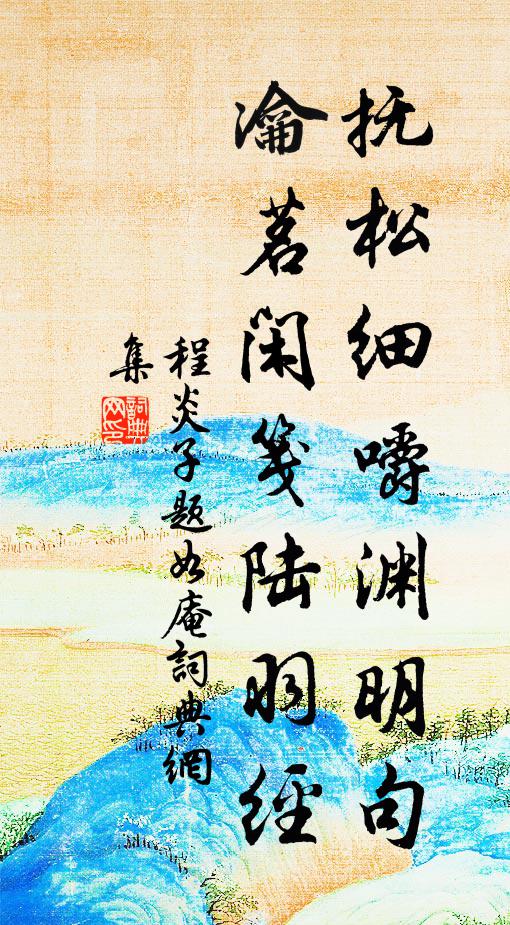 抚松细嚼渊明句
瀹茗闲笺陆羽经
程炎子题如庵詞典網
集
詞典网印